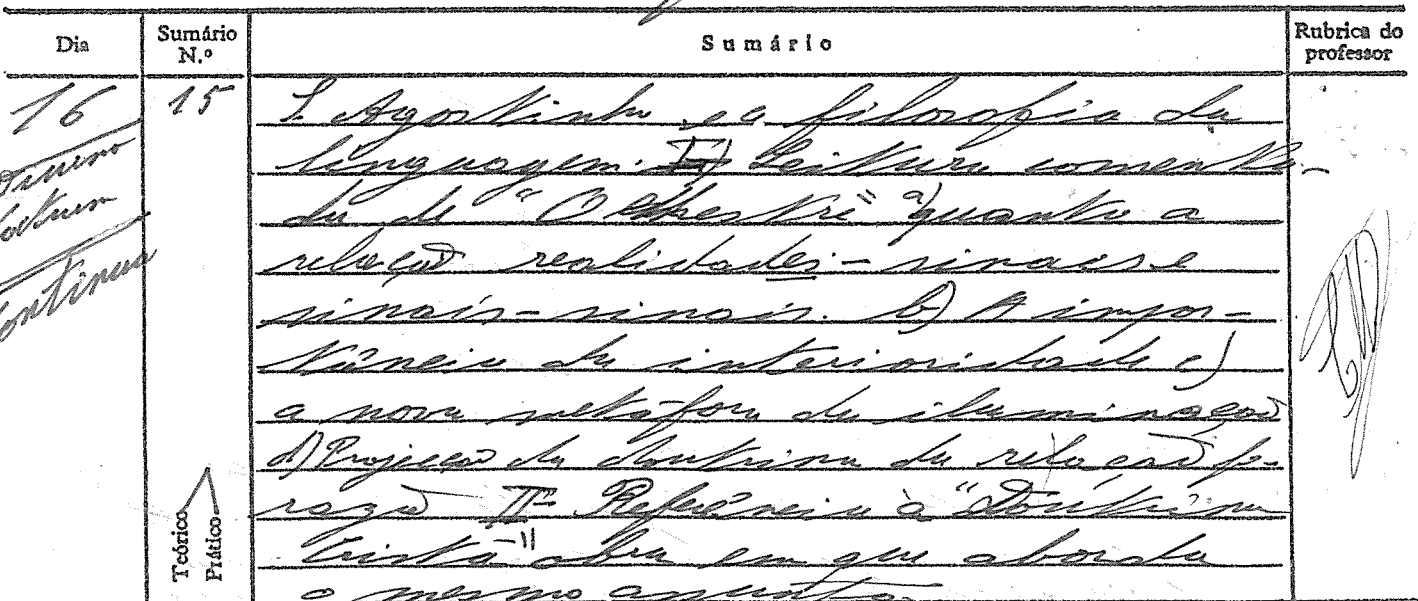 Dia
Sumário N.º
Sumário
Rubrica do professor
16
15
Diurno
Nocturno
Contínua
S. Agostinho e a filosofia da
linguagem. I) Leitura comenta-
da de "O Mestre" a) quanto a
relação realidades - sinais e
sinais - sinais. b) A impor-
tância da interioridade c)
a nova metáfora da iluminação
d) Projecção da doutrina da relação
II - Referência à "Doutrina
Cristã" obra em que aborda
o mesmo assunto.
Teórico
Prático